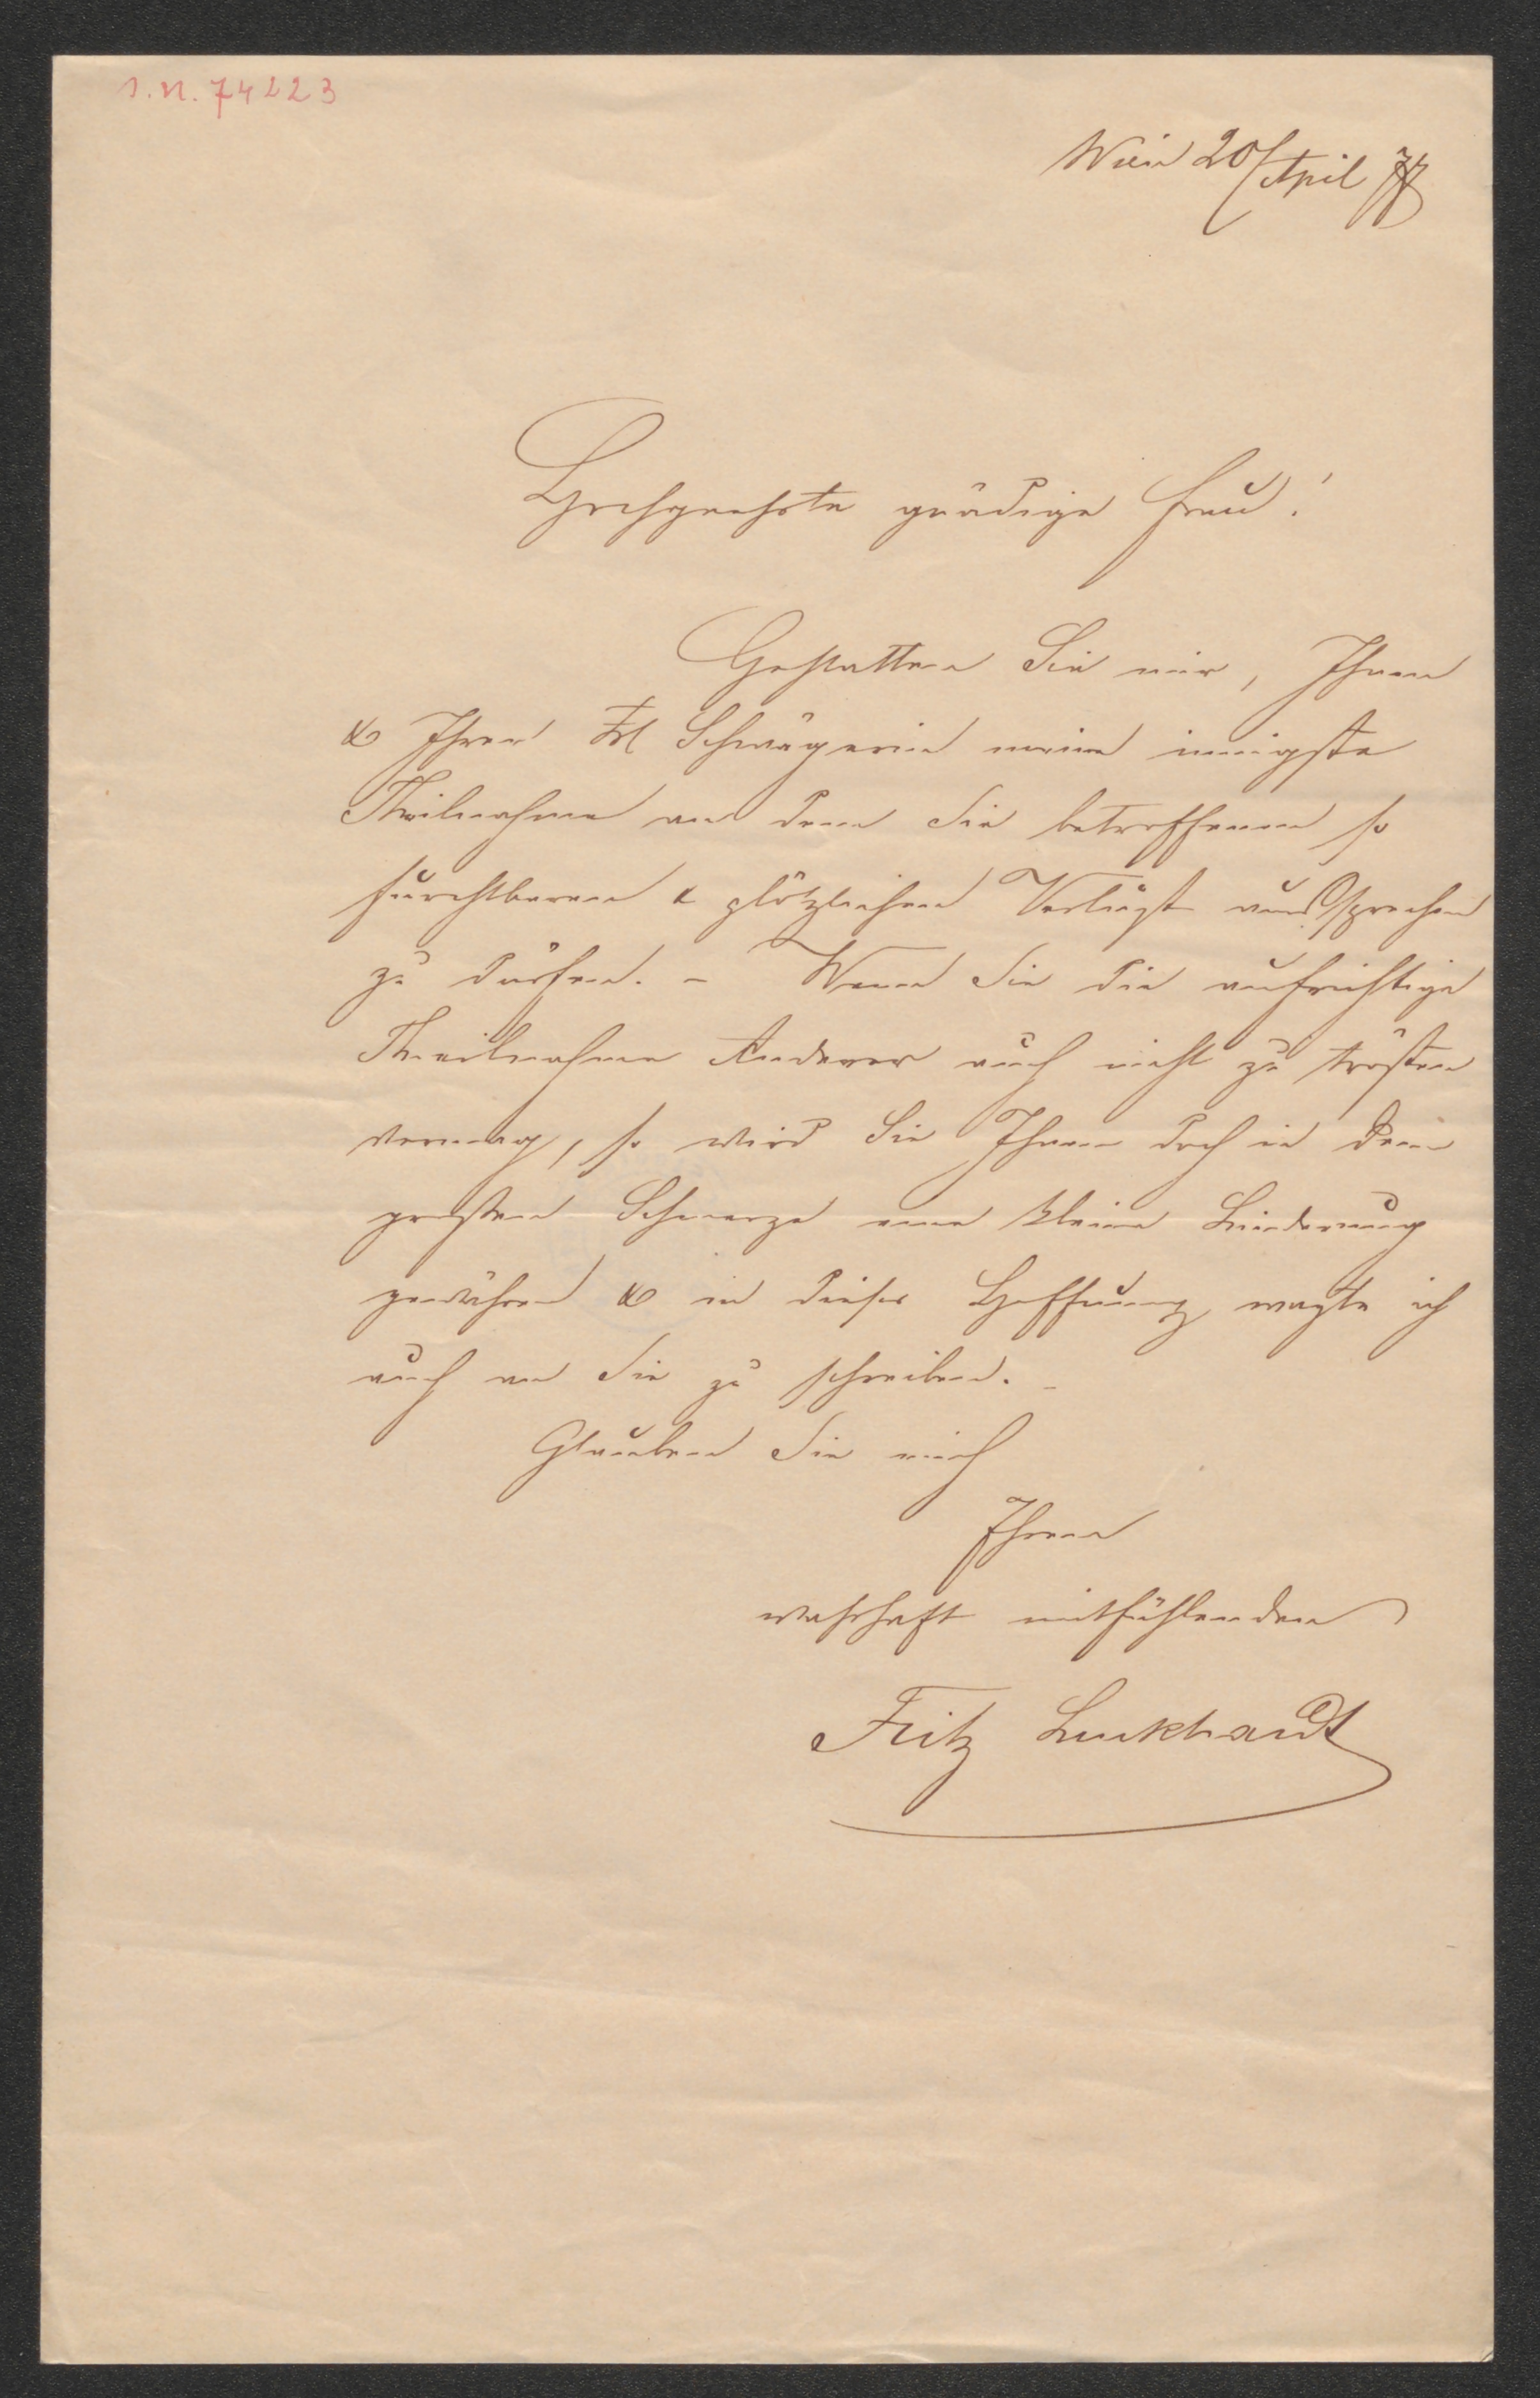 I.N. 74223
Wien 20/April 77
Hochgeehrte gnädige Frau!
Gestatten Sie mir, Ihnen
& Ihrer Frl Schwägerin meine innigste
Theilnahme an dem Sie betroffenen so
furchtbaren & plötzlichen Verlust aussprechen
zu dürfen. – Wenn Sie die aufrichtige
Theilnahme Anderer auch nicht zu trösten
vermag, so wird Sie Ihnen doch in dem
großen Schmerze eine kleine Linderung
gewähren & in dieser Hoffnung wagte ich
auch an Sie zu schreiben. –
Glauben Sie mich
Ihren
wahrhaft mitfühlenden
Fritz Luckhardt